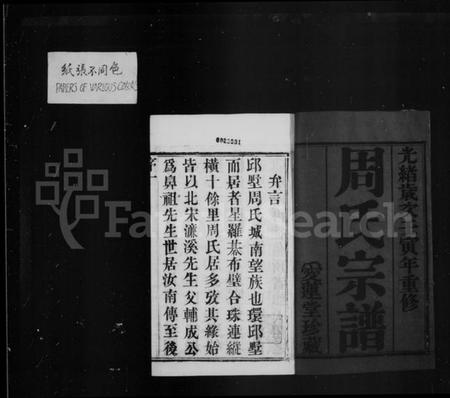 紙張不同色
PAPERS OF VARIOUS COLOR
0023331
弁言
邱墅周氏城南望族也環邱墅
而居者星羅棊布璧合珠連縱
橫十餘里周氏居多攷其緣始
皆以北宋濂溪先生父輔成公
爲鼻祖先生世居汝南傳至後
序一
光緒歲次壬寅年重修
周氏宗譜
愛蓮堂珍藏
FamilySearch